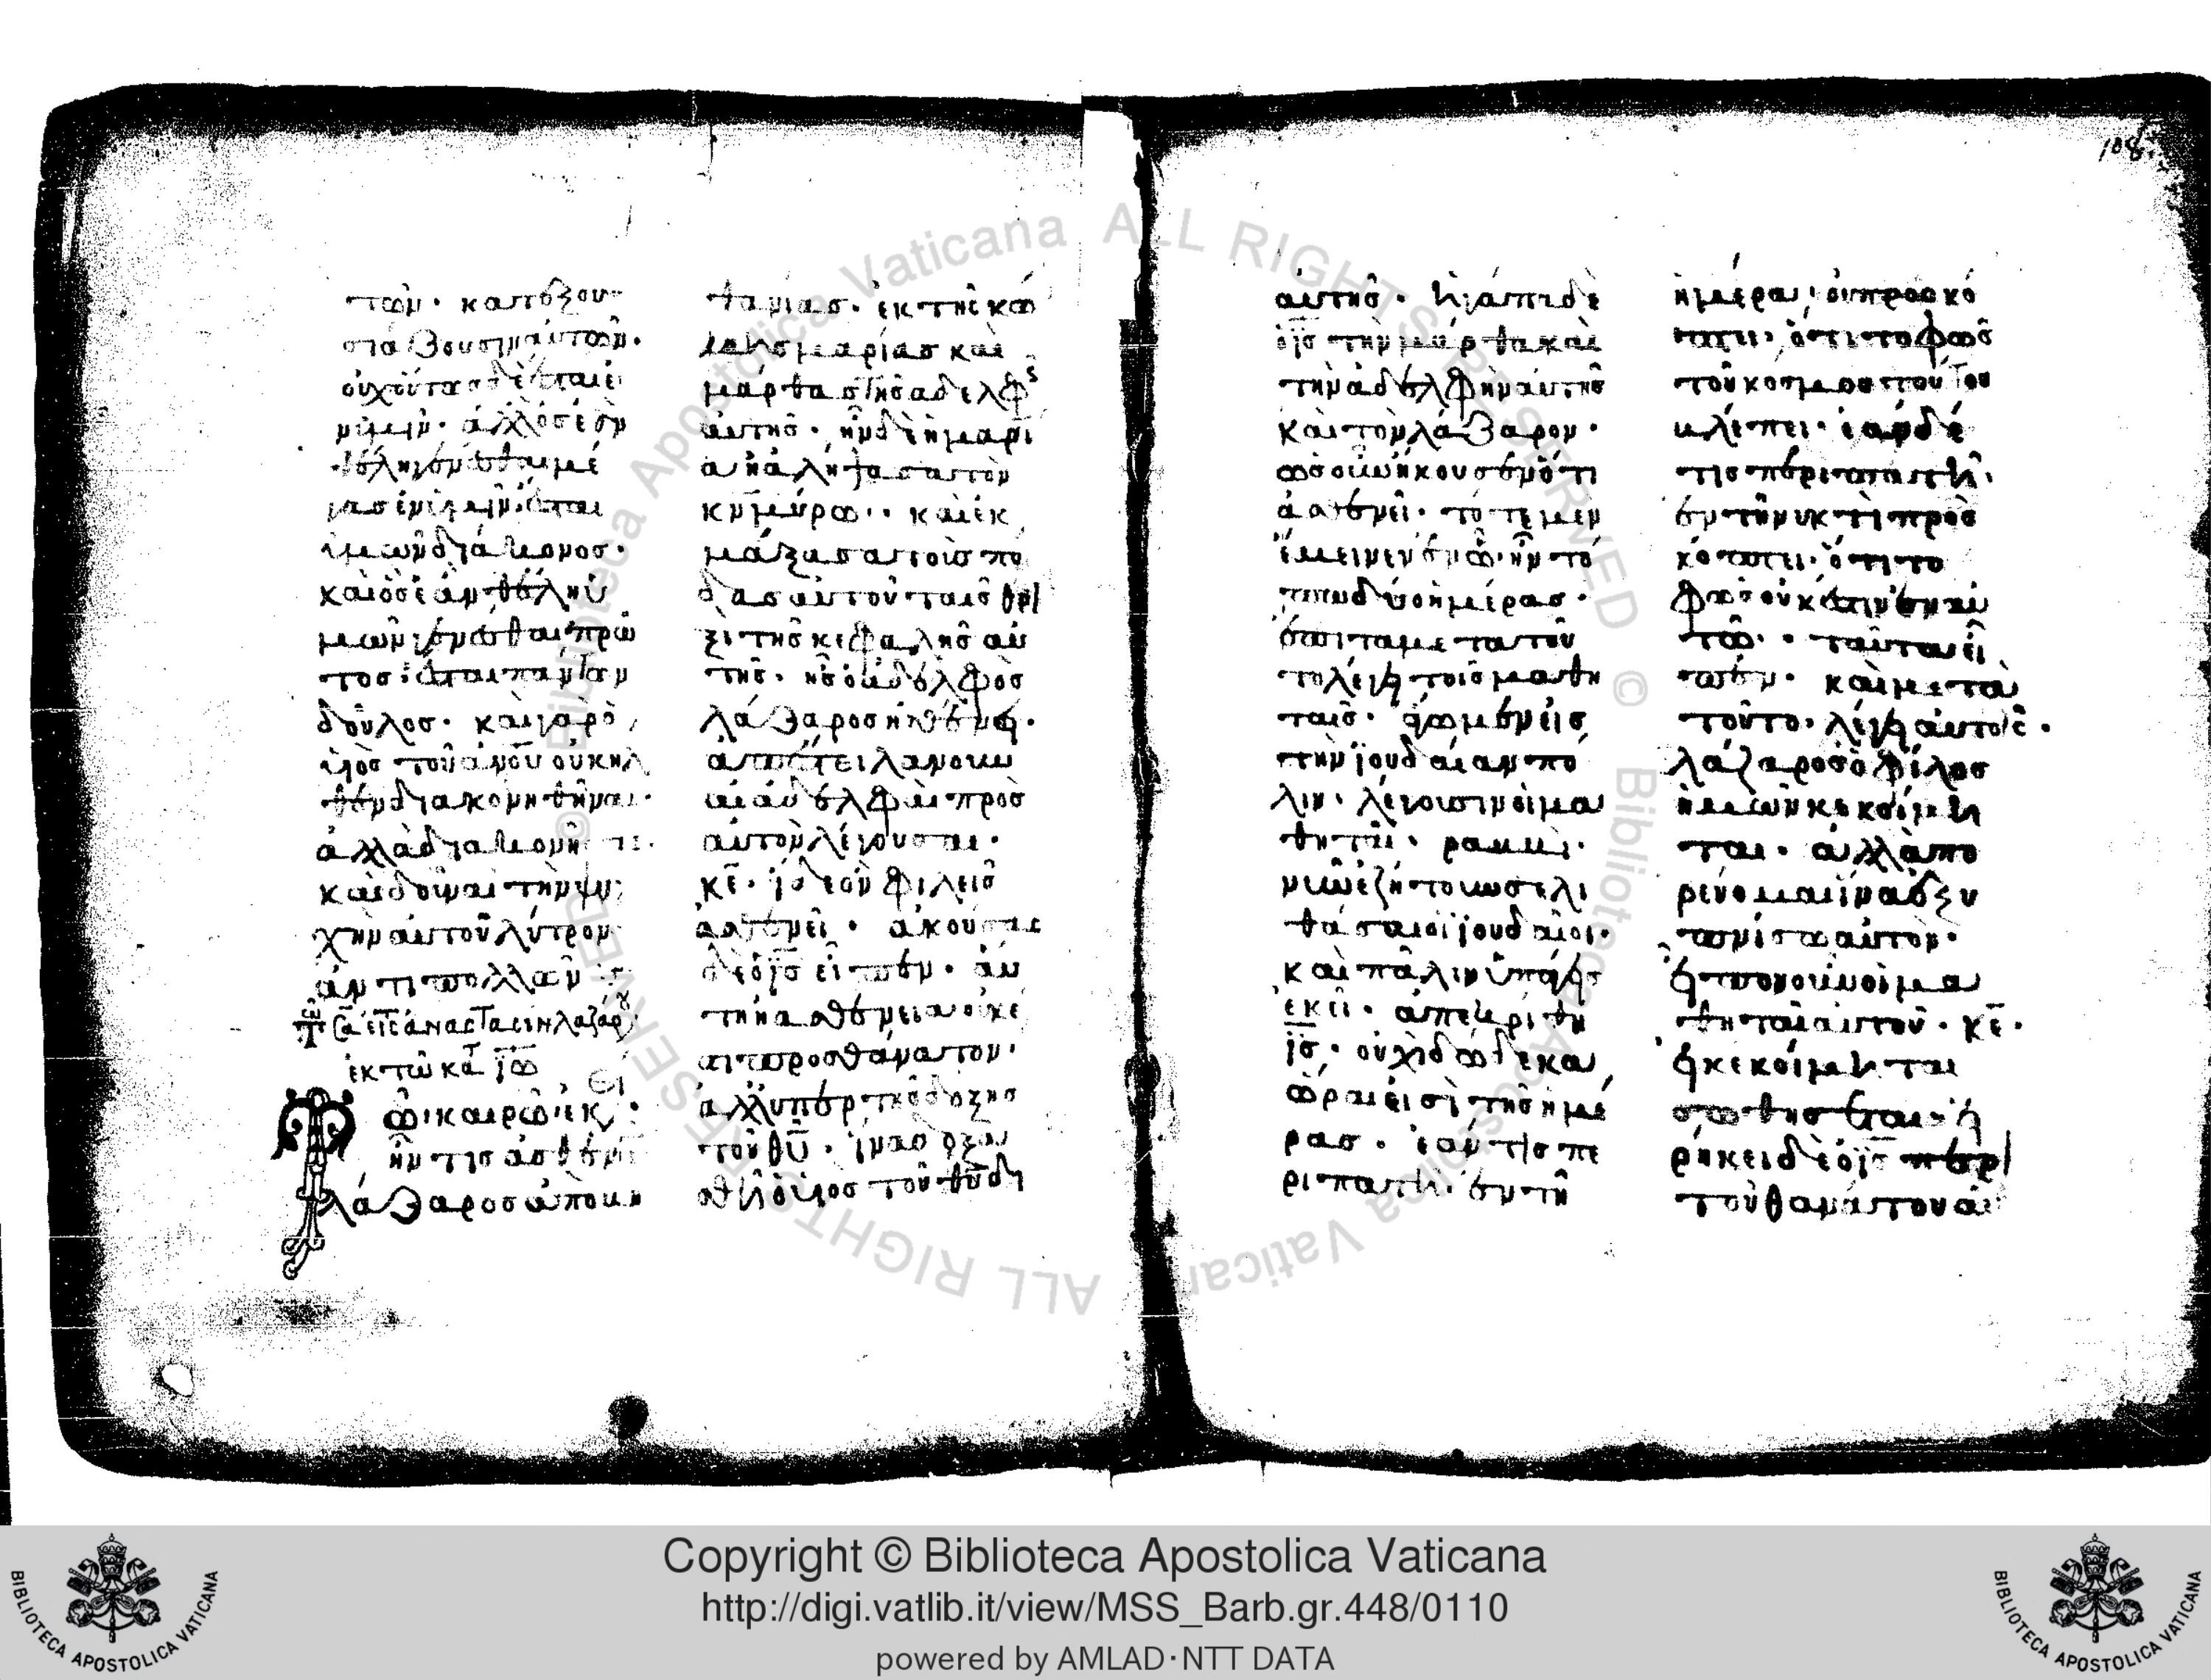 των· κατεξου
σιάζουσιν αὐτῶν·
οὐχοὕτως δὲ ἔσται ἐ
ν ὑμῖν· ἀλλ' ὃς ἐὰν
θέλῃ γενέσθαι μέ
γας ἐν ὑμῖν ἔσται
ὑμῶν διάκονος·
καὶ ὃς ἐὰν θέλῃ ὑ
μῶν γενέσθαι πρῶ
τος ἔσται πάντων
δοῦλος· καὶ γὰρ ὁ
υἱὸς τοῦ ἀνου οὐκ ἦλ
θεν διακονηθῆναι·
ἀλλὰ διακονῆσαι·
καὶ δοῦναι τὴν ψυ
χὴν αὐτοῦ λύτρον
ἀντὶ πολλῶν
εἰς ἀνάστασιν λαζάρου
ἐκ τοῦ κατ ἰω
Τῶι καιρῶι ἐκ
ἦν τις ἀσθενῶν
λάζαρος ἀπὸ βη
θανίας· ἐκ τῆς κώ
μης μαρίας καὶ
μάρθας τῆς ἀδελφς
αὐτῆς· ἦν δὲ ἡ μαρί
α ἡ ἀλήψασα τὸν
κν μύρω· καὶ ἐκ
μάξασα τοὺς πό
δας αὐτοῦ ταῖς θρι
ξὶ τῆς κεφαλῆς αὐ
τῆς· ἧς ὁ ἀδελφὸς
λάζαρος ἠσθένει·
ἀπέστειλαν οὖν
αἱ ἀδελφαὶ πρὸς
αὐτὸν λέγουσαι·
κε· ἴδε ὃν φιλεῖς
ἀσθενεῖ· ἀκούσας
δὲ ὁ ις εἶπεν· αὕ
τη ἡ ἀσθένεια οὐκ ἔ
στι πρὸς θάνατον·
ἀλλ' ὑπὲρ τῆς δόξης
τοῦ θυ· ἵνα δοξα
σθῆ ὁ υἱὸς τοῦ θυ δι'
αὐτῆς· ἠγάπα δὲ
ὁ ις τὴν μάρθα καὶ
τὴν ἀδελφὴν αὐτῆς
καὶ τὸν λάζαρον·
ὡς οὖν ἤκουσεν ὅτι
ἀσθενεῖ· τότε μὲν
ἔμεινεν ἐν ᾧ ἦν τό
πω δύο ἡμέρας·
ἔπειτα μετὰ τοῦ
το λέγει τοῖς μαθη
ταῖς· ἄγωμεν εἰς
τὴν ἰουδαίαν πά
λιν· λέγουσιν οἱ μα
θηταί· ραββί·
νῦν ἐζήτουν σε λι
θάσαι οἱ ἰουδαῖοι·
καὶ πάλιν ὑπάγεις
ἐκεῖ· ἀπεκρίθη
ις· οὐχὶ δώδεκα
ὧραι εἰσὶ τῆς ἡμέ
ρας· ἐάν τις πε
ριπατῆ ἐν τῆ
ἡμέρα, οὐ προσκό
πτει, ὅτι τὸ φῶς
τοῦ κόσμου τούτου
βλέπει· ἐὰν δέ
τις περιπατῆ
ἐν τῆ νυκτὶ προσ
κόπτει· ὅτι τὸ
φῶς οὐκ ἔστιν ἐν αὐ
τῶ· ταῦτα εἶ
πεν· καὶ μετὰ
τοῦτο· λέγει αὐτοῖς·
λάζαρος ὁ φίλος
ἡμῶν κεκοίμη
ται· ἀλλὰ πο
ρεύομαι ἵνα ἐξυ
πνίσω αὐτόν·
εἶπον οὖν οἱ μα
θηταὶ αὐτοῦ· κε·
εἰ κεκοίμηται
σωθήσεται· εἰ
ρήκει δὲ ὁ ις περὶ
τοῦ θανάτου αὐ
108
Copyright © Biblioteca Apostolica Vaticana
http://digi.vatlib.it/view/MSS_Barb.gr.448/0110
powered by AMLAD·NTT DATA
BIBLIOTECA APOSTOLICA VATICANA
BIBLIOTECA APOSTOLICA VATICANA